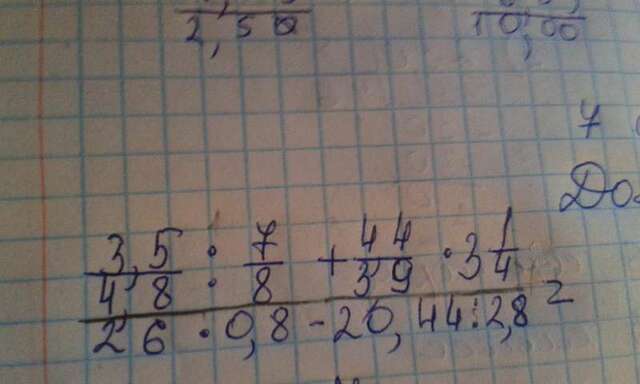 2,50
10,00
7
До
3,5/4,8 : 7/8 + 44/39 · 3 1/4
26 · 0,8 - 20,44 : 2,8 =